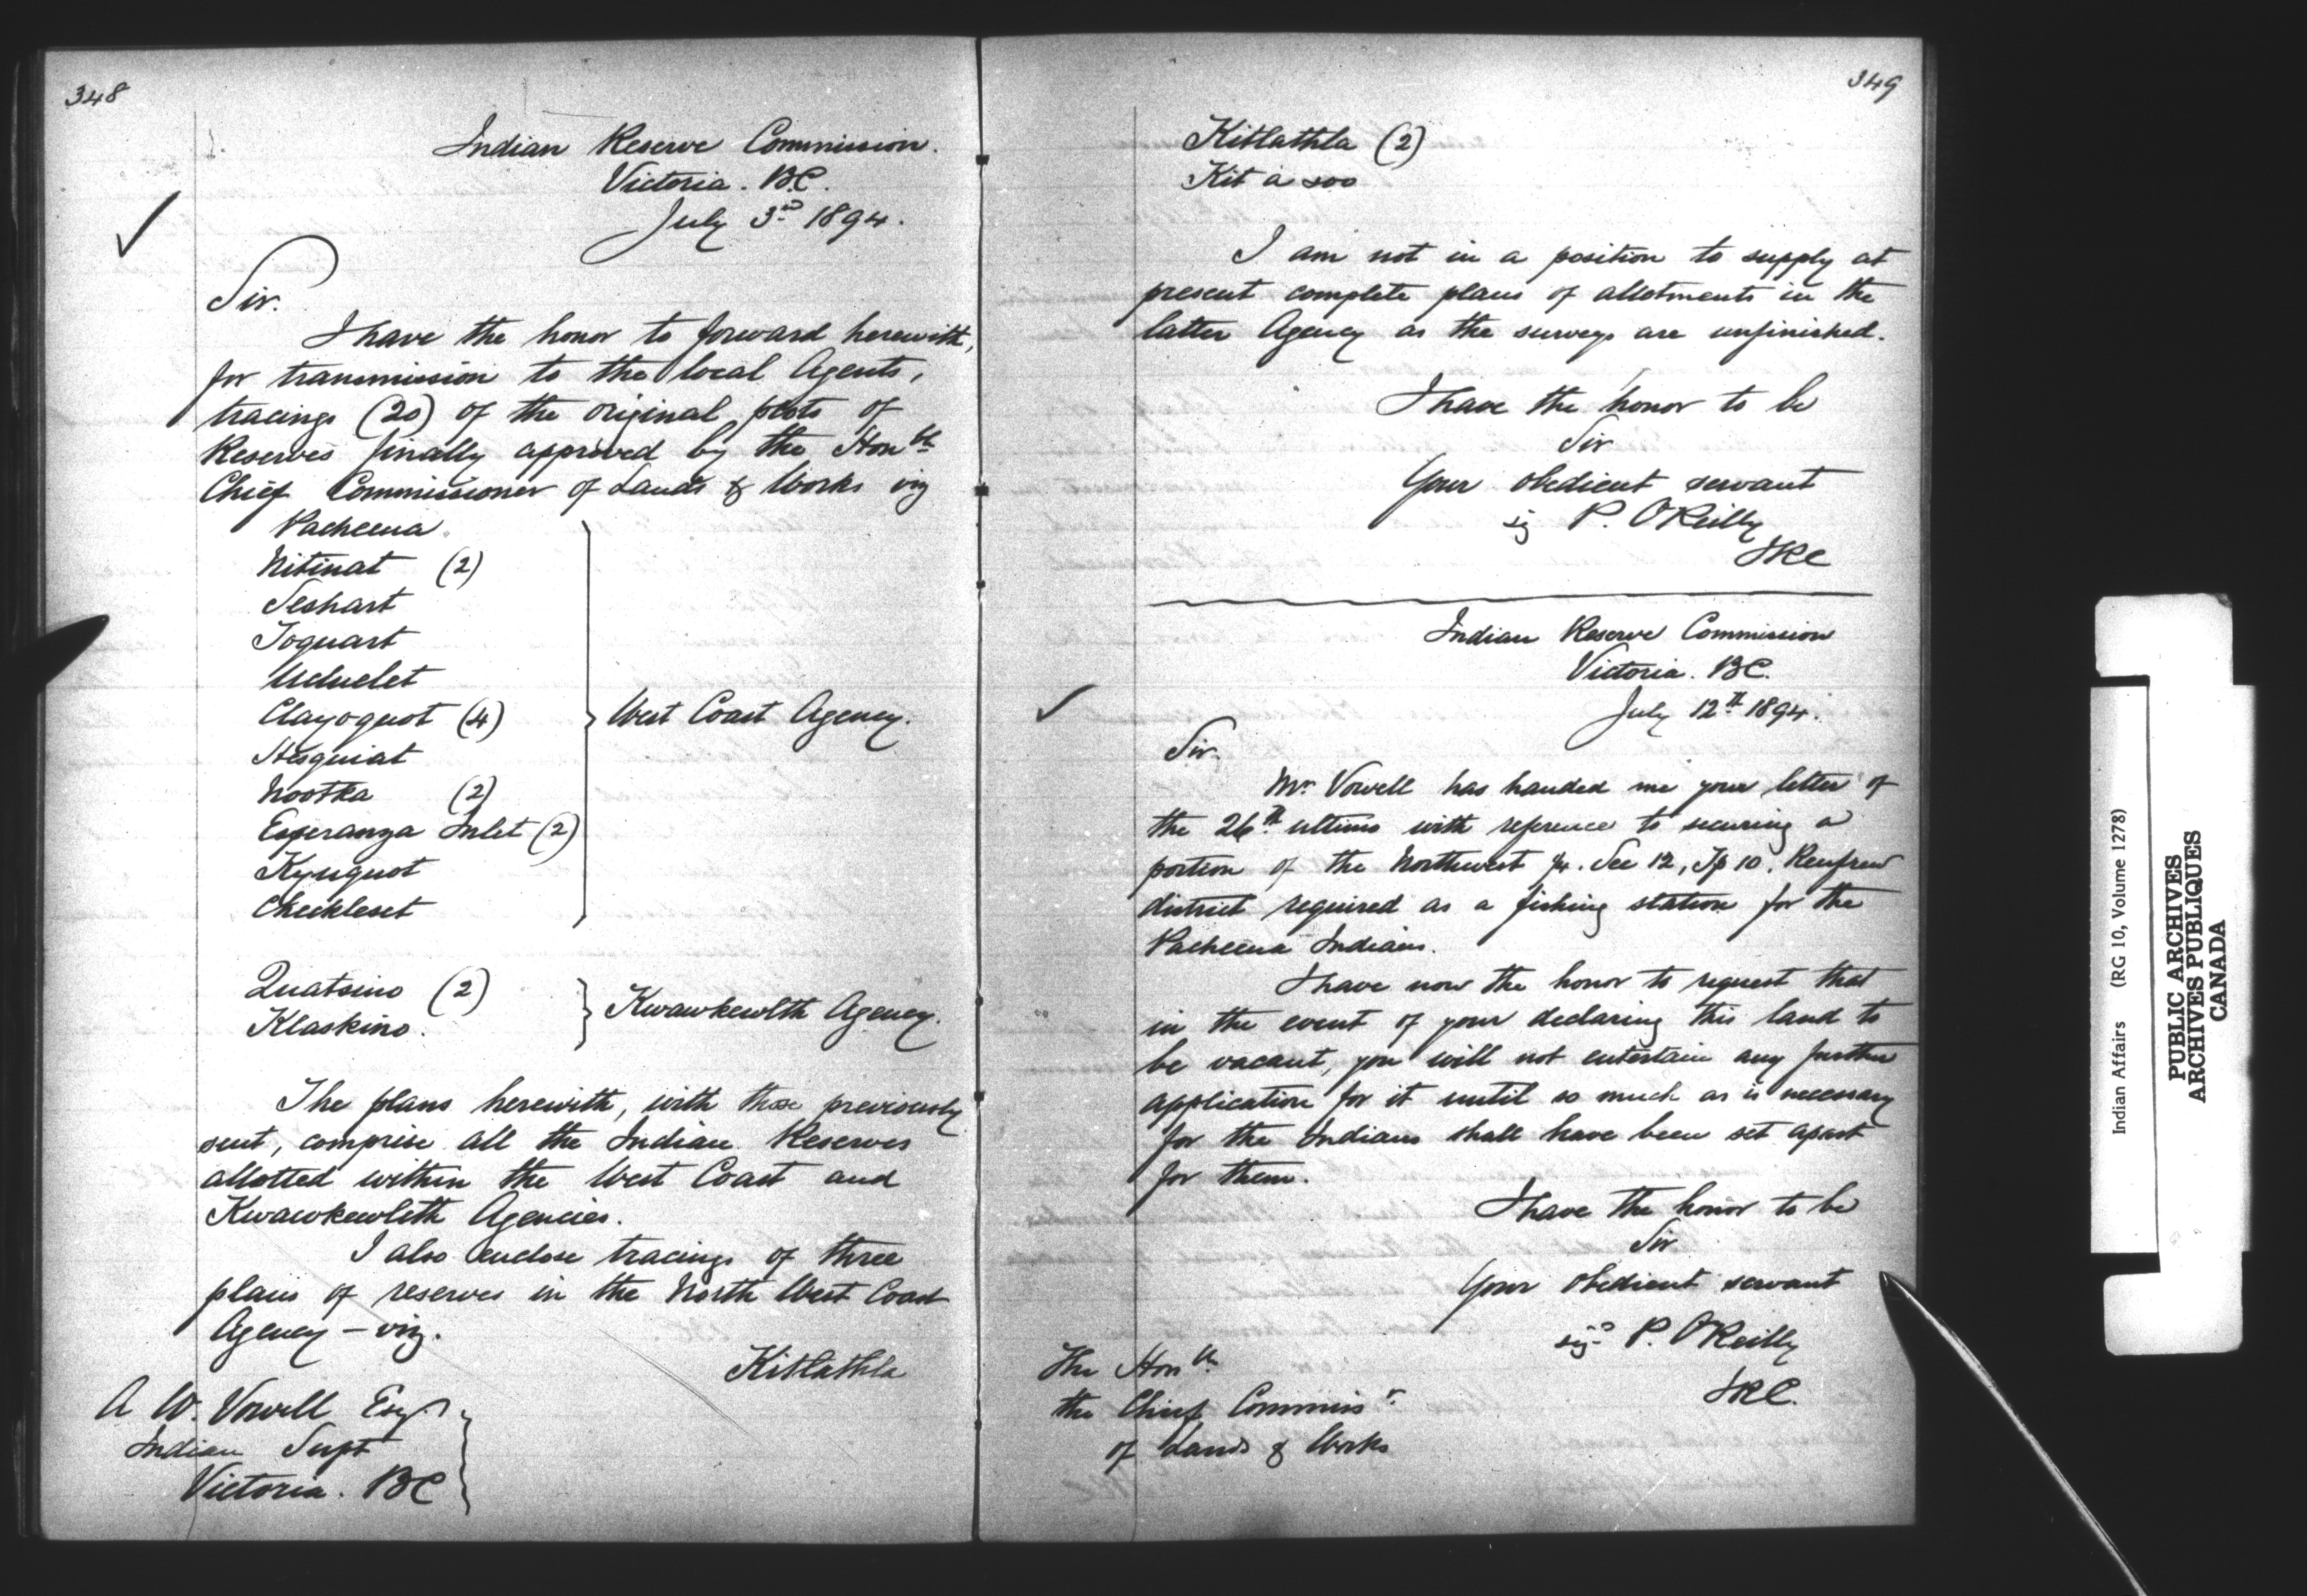 348
Indian Reserve Commission.
Victoria. B.C.
July 3rd 1894.
Sir.
I have the honor to forward herewith,
for transmission to the local Agents,
tracings (20) of the original plots of
Reserves finally approved by the Honble
Chief Commissioner of Lands & Works viz
Pacheena.
Nitinat (2)
Seshart
Toquart
Ucluelet
Clayoquot (4)
Hesquiat
Nootka (2)
Esperanza Inlet (2)
Kyuquot
Checkleset
West Coast Agency.
Quatsino (2)
Klaskino.
Kwawkewlth Agency.
The plans herewith, with those previously
sent, comprise all the Indian Reserves
allotted within the West Coast and
Kwawkewlth Agencies.
I also enclose tracings of three
plans of reserves in the North West Coast
Agency – viz.
Kitlathla
A. W. Vowell Esq.
Indian Supt
Victoria. BC
349
Kitlathla (2)
Kit a soo
I am not in a position to supply at
present complete plans of allotments in the
latter Agency as the surveys are unfinished.
I have the honor to be
Sir
Your obedient servant
sig P. O'Reilly
IRC
Indian Reserve Commission
Victoria. BC.
July 12th 1894.
Sir.
Mr. Vowell has handed me your letter of
the 26th ultimo with reference to securing a
portion of the Northwest 1/4. Sec 12, Tp 10. Renfrew
district required as a fishing station for the
Pacheena Indians.
I have now the honor to request that
in the event of your declaring this land to
be vacant, you will not entertain any further
application for it until so much as is necessary
for the Indians shall have been set apart
for them.
I have the honor to be
Sir
Your obedient servant
sigd P. O'Reilly
IRC.
The Honble
the Chief Commissr
of Lands & Works
Indian Affairs (RG 10, Volume 1278)
PUBLIC ARCHIVES
ARCHIVES PUBLIQUES
CANADA